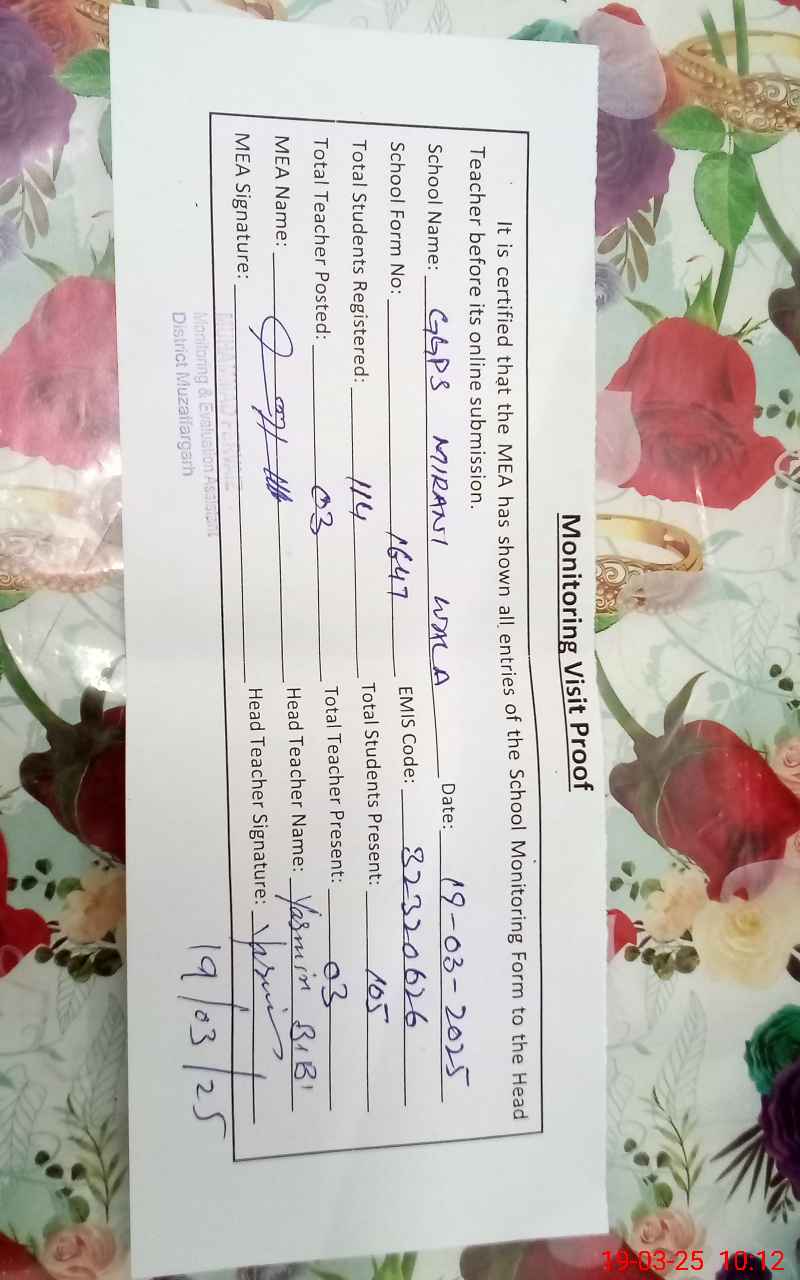 Monitoring Visit Proof
It is certified that the MEA has shown all entries of the School Monitoring Form to the Head
Teacher before its online submission.
School Name: GGPS MIRANI WALA Date: 19-03-2025
School Form No: 1647 EMIS Code: 32320626
Total Students Registered: 114 Total Students Present: 105
Total Teacher Posted: 03 Total Teacher Present: 03
MEA Name: Head Teacher Name: Yasmin BiBi
MEA Signature: Head Teacher Signature: Yasmin
Monitoring & Evaluation Assistant
District Muzaffargarh
19/03/25
19-03-25 10:12